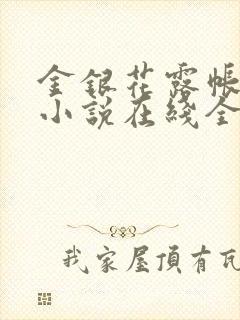 金銀花露帳
小說在綫全
我家屋頂有瓦